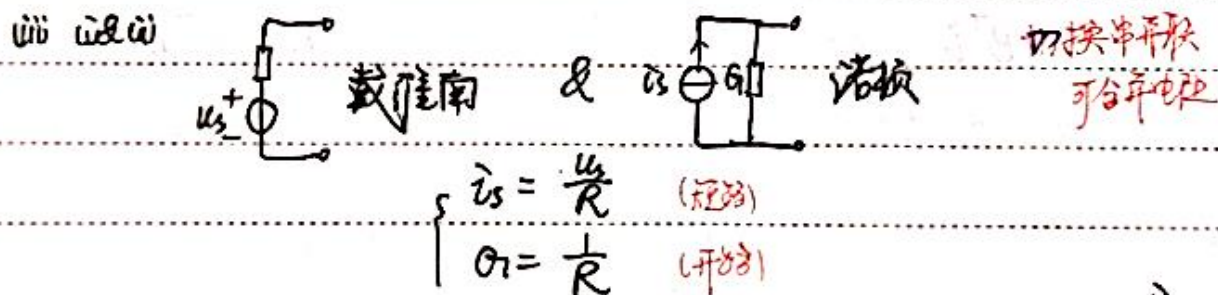 (iii) (i)&(ii)
us + - 戴维南 & is G 诺顿 切换串并联
可合并电阻
is = us/R (短路)
G = 1/R (开路)